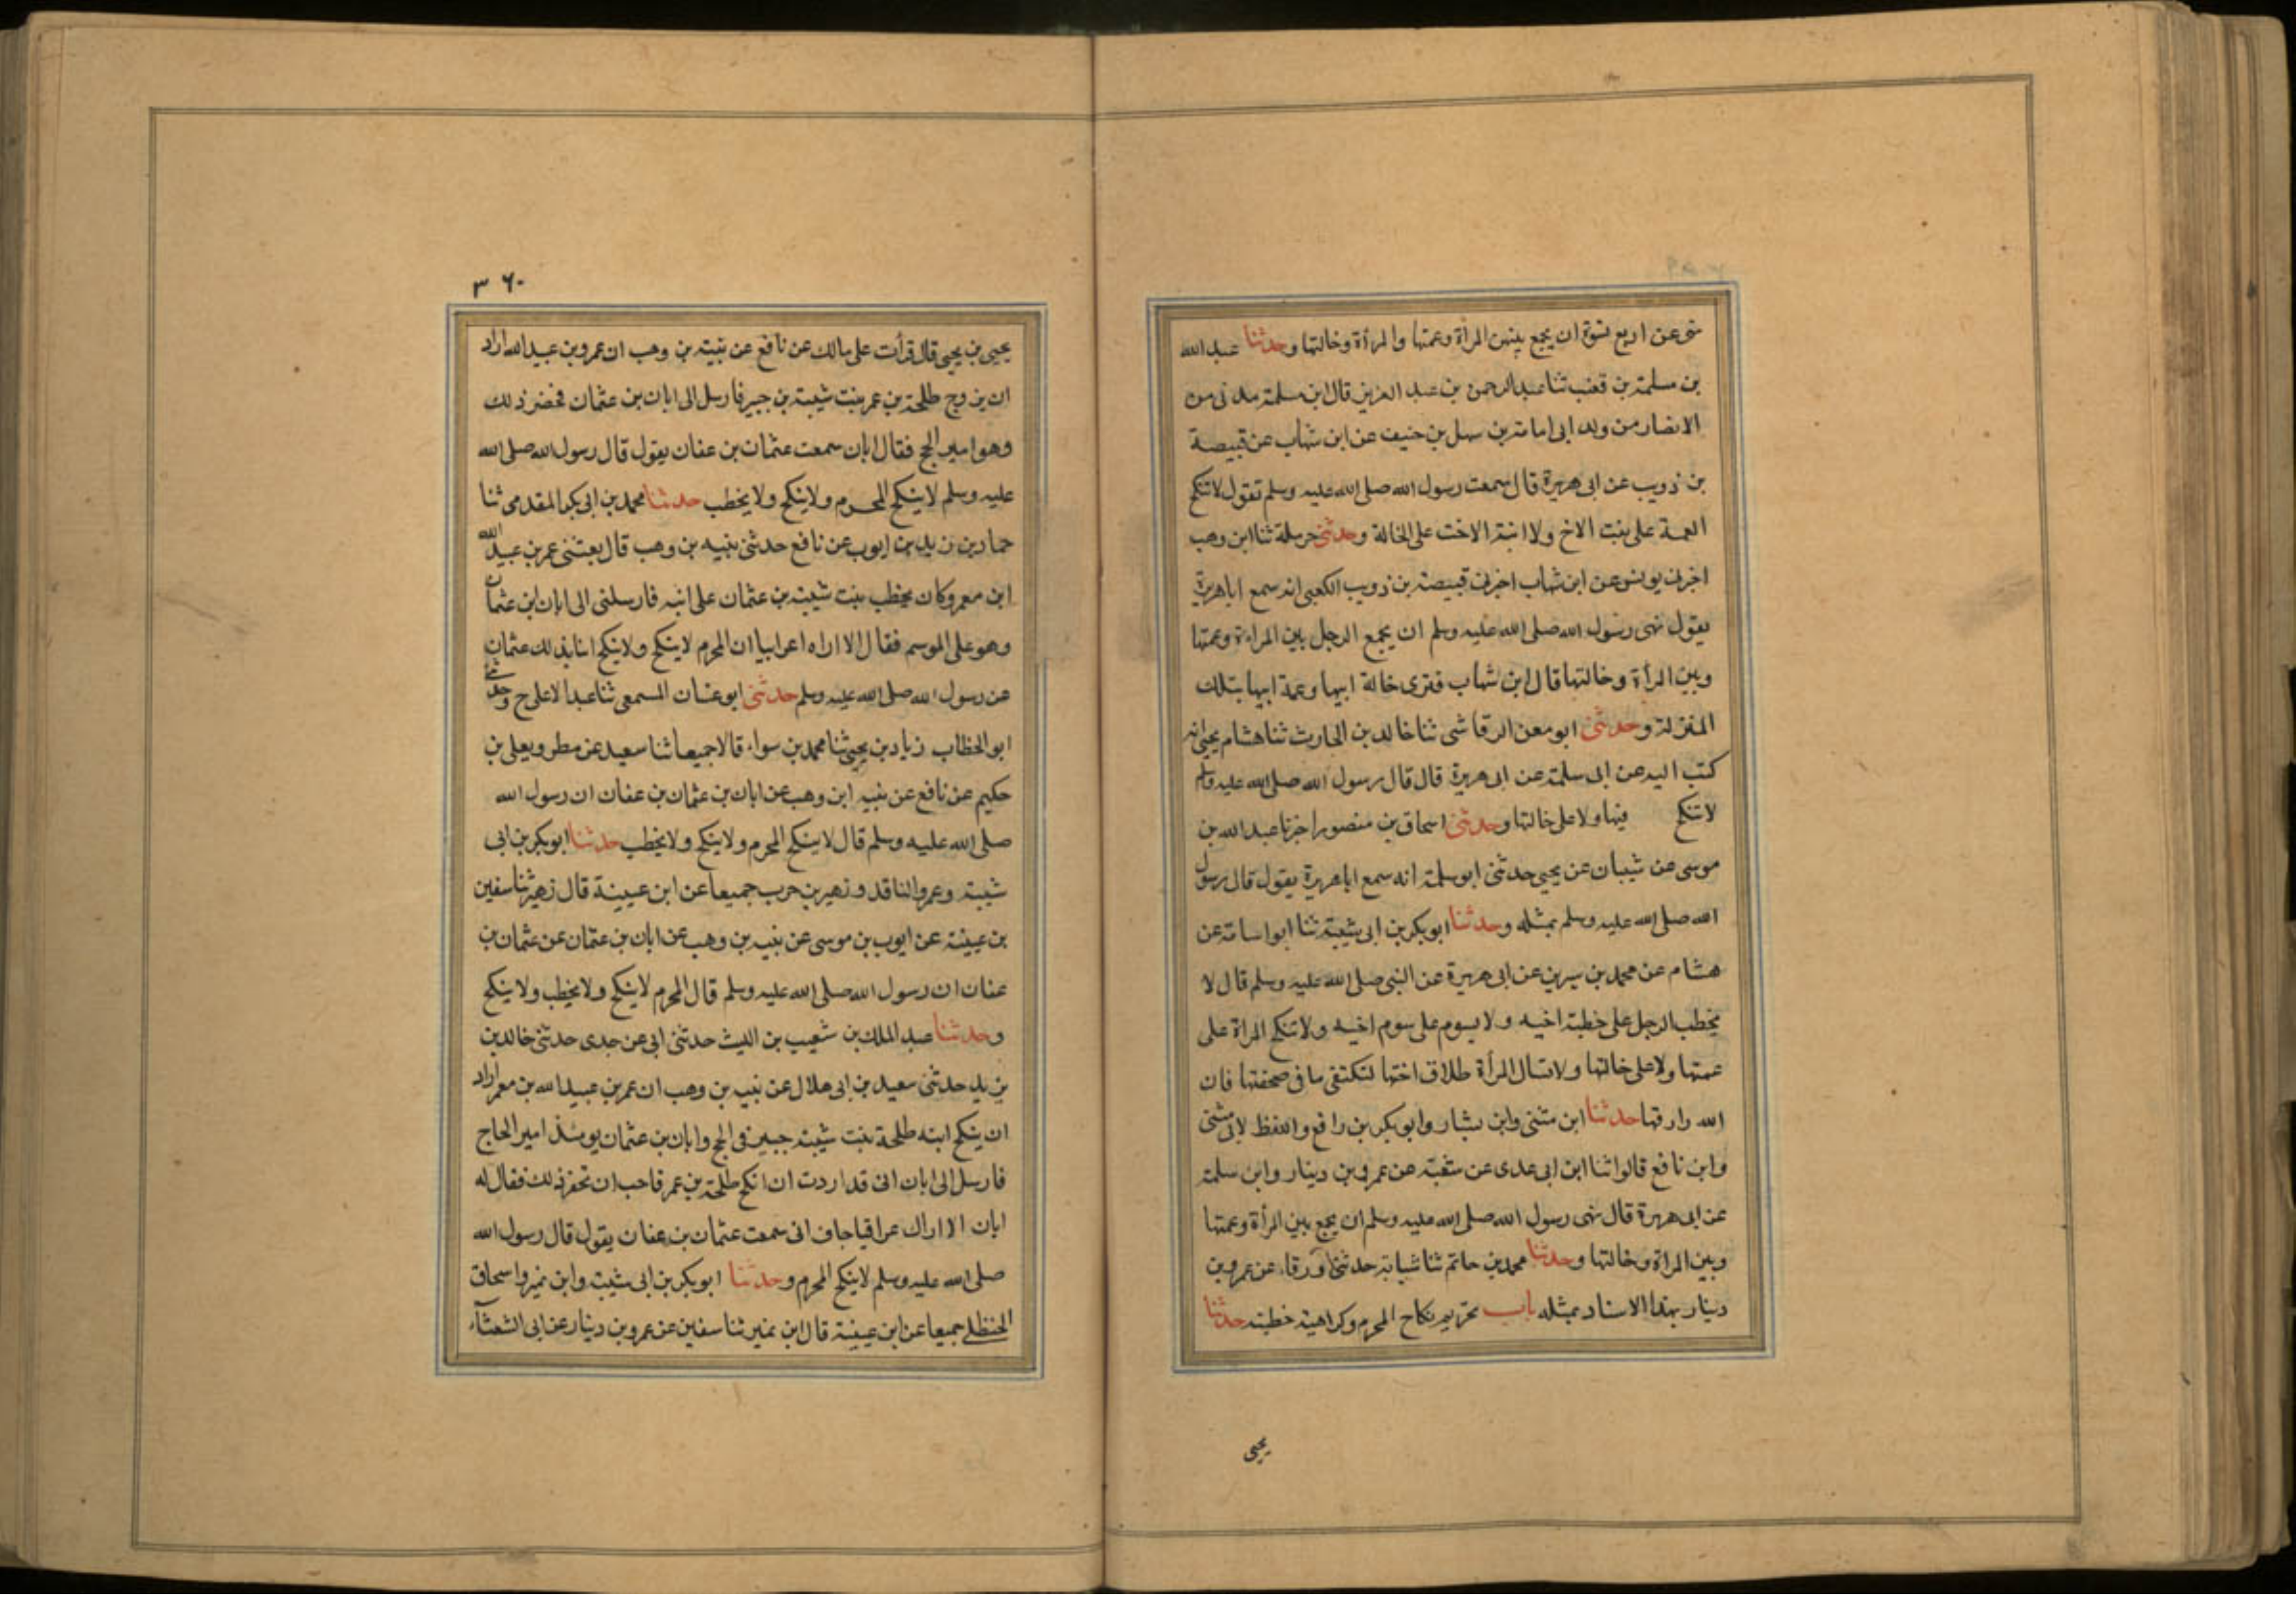 نهى عن اربع نسوة ان يجمع بينهن المرأة وعمتها والمرأة وخالتها وحدثنا عبد الله
بن مسلمة بن قعنب ثنا عبد الرحمن بن عبد العزيز قال ابن مسلمة مدنى من
الانصار من ولد ابى امامة بن سهل بن حنيف عن ابن شهاب عن قبيصة
بن ذويب عن ابى هريرة قال سمعت رسول الله صلى الله عليه وسلم تقول لا تنكح
العمة على بنت الاخ ولا ابنة الاخت على الخالة وحدثنى حرملة ثنا ابن وهب
اخبرنى يونس عن ابن شهاب اخبرنى قبيصة بن ذويب الكعبى انه سمع اباهريرة
يقول نهى رسول الله صلى الله عليه وسلم ان يجمع الرجل بين المراءة وعمتها
وبين المرأة وخالتها قال ابن شهاب فنرى خالة ابيها وعمة ابيها بتلك
المنزلة وحدثنى ابو معن الرقاشى ثنا خالد بن الحارث ثنا هشام يحيى انه
كتب اليه عن ابى سلمة عن ابى هريرة قال قال رسول الله صلى الله عليه وسلم
لا تنكح فيها ولا على خالتها وحدثنى اسحاق بن منصور اخبرنا عبد الله بن
موسى عن شيبان عن يحيى حدثنى ابو سلمة انه سمع اباهريرة يقول قال رسول
الله صلى الله عليه وسلم بمثله وحدثنا ابوبكر بن ابى شيبة ثنا ابو اسامة عن
هشام عن محمد بن سيرين عن ابى هريرة عن النبى صلى الله عليه وسلم قال لا
يخطب الرجل على خطبة اخيه ولا يسوم على سوم اخيه ولا تنكح المراة على
عمتها ولا على خالتها ولا تسال المرأة طلاق اختها لتكتفى ما فى صحفتها فان
الله رازقها حدثنا ابن مثنى وابن بشار وابو بكر بن رافع واللفظ لابن مثنى
وابن نافع قالوا ثنا ابن ابى عدى عن شعبة عن عمرو بن دينار وابن سلمة
عن ابى هريرة قال نهى رسول الله صلى الله عليه وسلم ان يجمع بين المرأة وعمتها
وبين المراة وخالتها وحدثنا محمد بن حاتم ثنا شبابة حدثنى ورقاء عن عمرو بن
دينار بهذا الاسناد بمثله باب تحريم نكاح المحرم وكراهية خطبته حدثنا
يحيى
٣٦٠
يحيى بن يحيى قال قرأت على مالك عن نافع عن نبيه بن وهب ان عمرو بن عبيد الله اراد
ان يزوج طلحة بن عمر بنت شيبة بن جبير فارسل الى ابان بن عثمان فحضر ذلك
وهو امير الحج فقال ابان سمعت عثمان بن عفان يقول قال رسول الله صلى الله
عليه وسلم لا ينكح المحرم ولا ينكح ولا يخطب حدثنا محمد بن ابى بكر المقدمى ثنا
حماد بن زيد بن ايوب عن نافع حدثنى نبيه بن وهب قال بعثنى عمر بن عبيد الله
ابن معمر وكان يخطب بنت شيبة بن عثمان على ابنه فارسلنى الى ابان بن عثمان
وهو على الموسم فقال الا اراه اعرابيا ان المحرم لا ينكح ولا ينكح انا بذلك عثمان
عن رسول الله صلى الله عليه وسلم حدثنى ابو غسان المسمعى ثنا عبد الاعلى ح وحدثنى
ابو الخطاب زياد بن يحيى ثنا محمد بن سواء قالا جميعا ثنا سعيد عن مطر ويعلى بن
حكيم عن نافع عن نبيه ابن وهب عن ابان بن عثمان بن عفان ان رسول الله
صلى الله عليه وسلم قال لا ينكح المحرم ولا ينكح ولا يخطب حدثنا ابو بكر بن ابى
شيبة وعمرو الناقد وزهير بن حرب جميعا عن ابن عيينة قال زهير ثنا سفين
بن عيينة عن ايوب بن موسى عن نبيه بن وهب عن ابان بن عثمان عن عثمان بن
عفان ان رسول الله صلى الله عليه وسلم قال المحرم لا ينكح ولا يخطب ولا ينكح
وحدثنا عبد الملك بن شعيب بن الليث حدثنى ابى عن جدى حدثنى خالد بن
يزيد حدثنى سعيد بن ابى هلال عن نبيه بن وهب ان عمر بن عبيد الله بن معمر اراد
ان ينكح ابنه طلحة بنت شيبة جبير فى الحج وابان بن عثمان يومئذ امير الحاج
فارسل الى ابان انى قد اردت ان انكح طلحة بن عمر فاحب ان تحضر ذلك فقال له
ابان الا اراك عراقيا جاف انى سمعت عثمان بن عفان يقول قال رسول الله
صلى الله عليه وسلم لا ينكح المحرم وحدثنا ابو بكر بن ابى شيبة وابن نمير واسحاق
الحنظلى جميعا عن ابن عيينة قال ابن نمير ثنا سفين عن عمرو بن دينار عن ابى الشعثآء